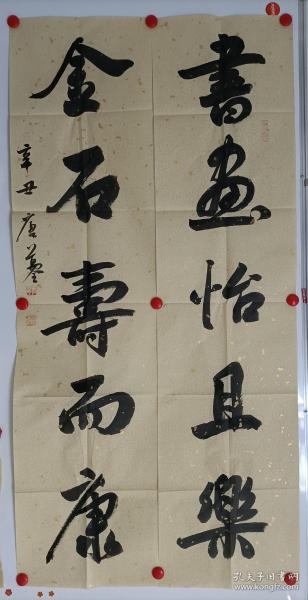 書畫怡且樂
金石壽而康
辛丑 唐
孔夫子旧书网